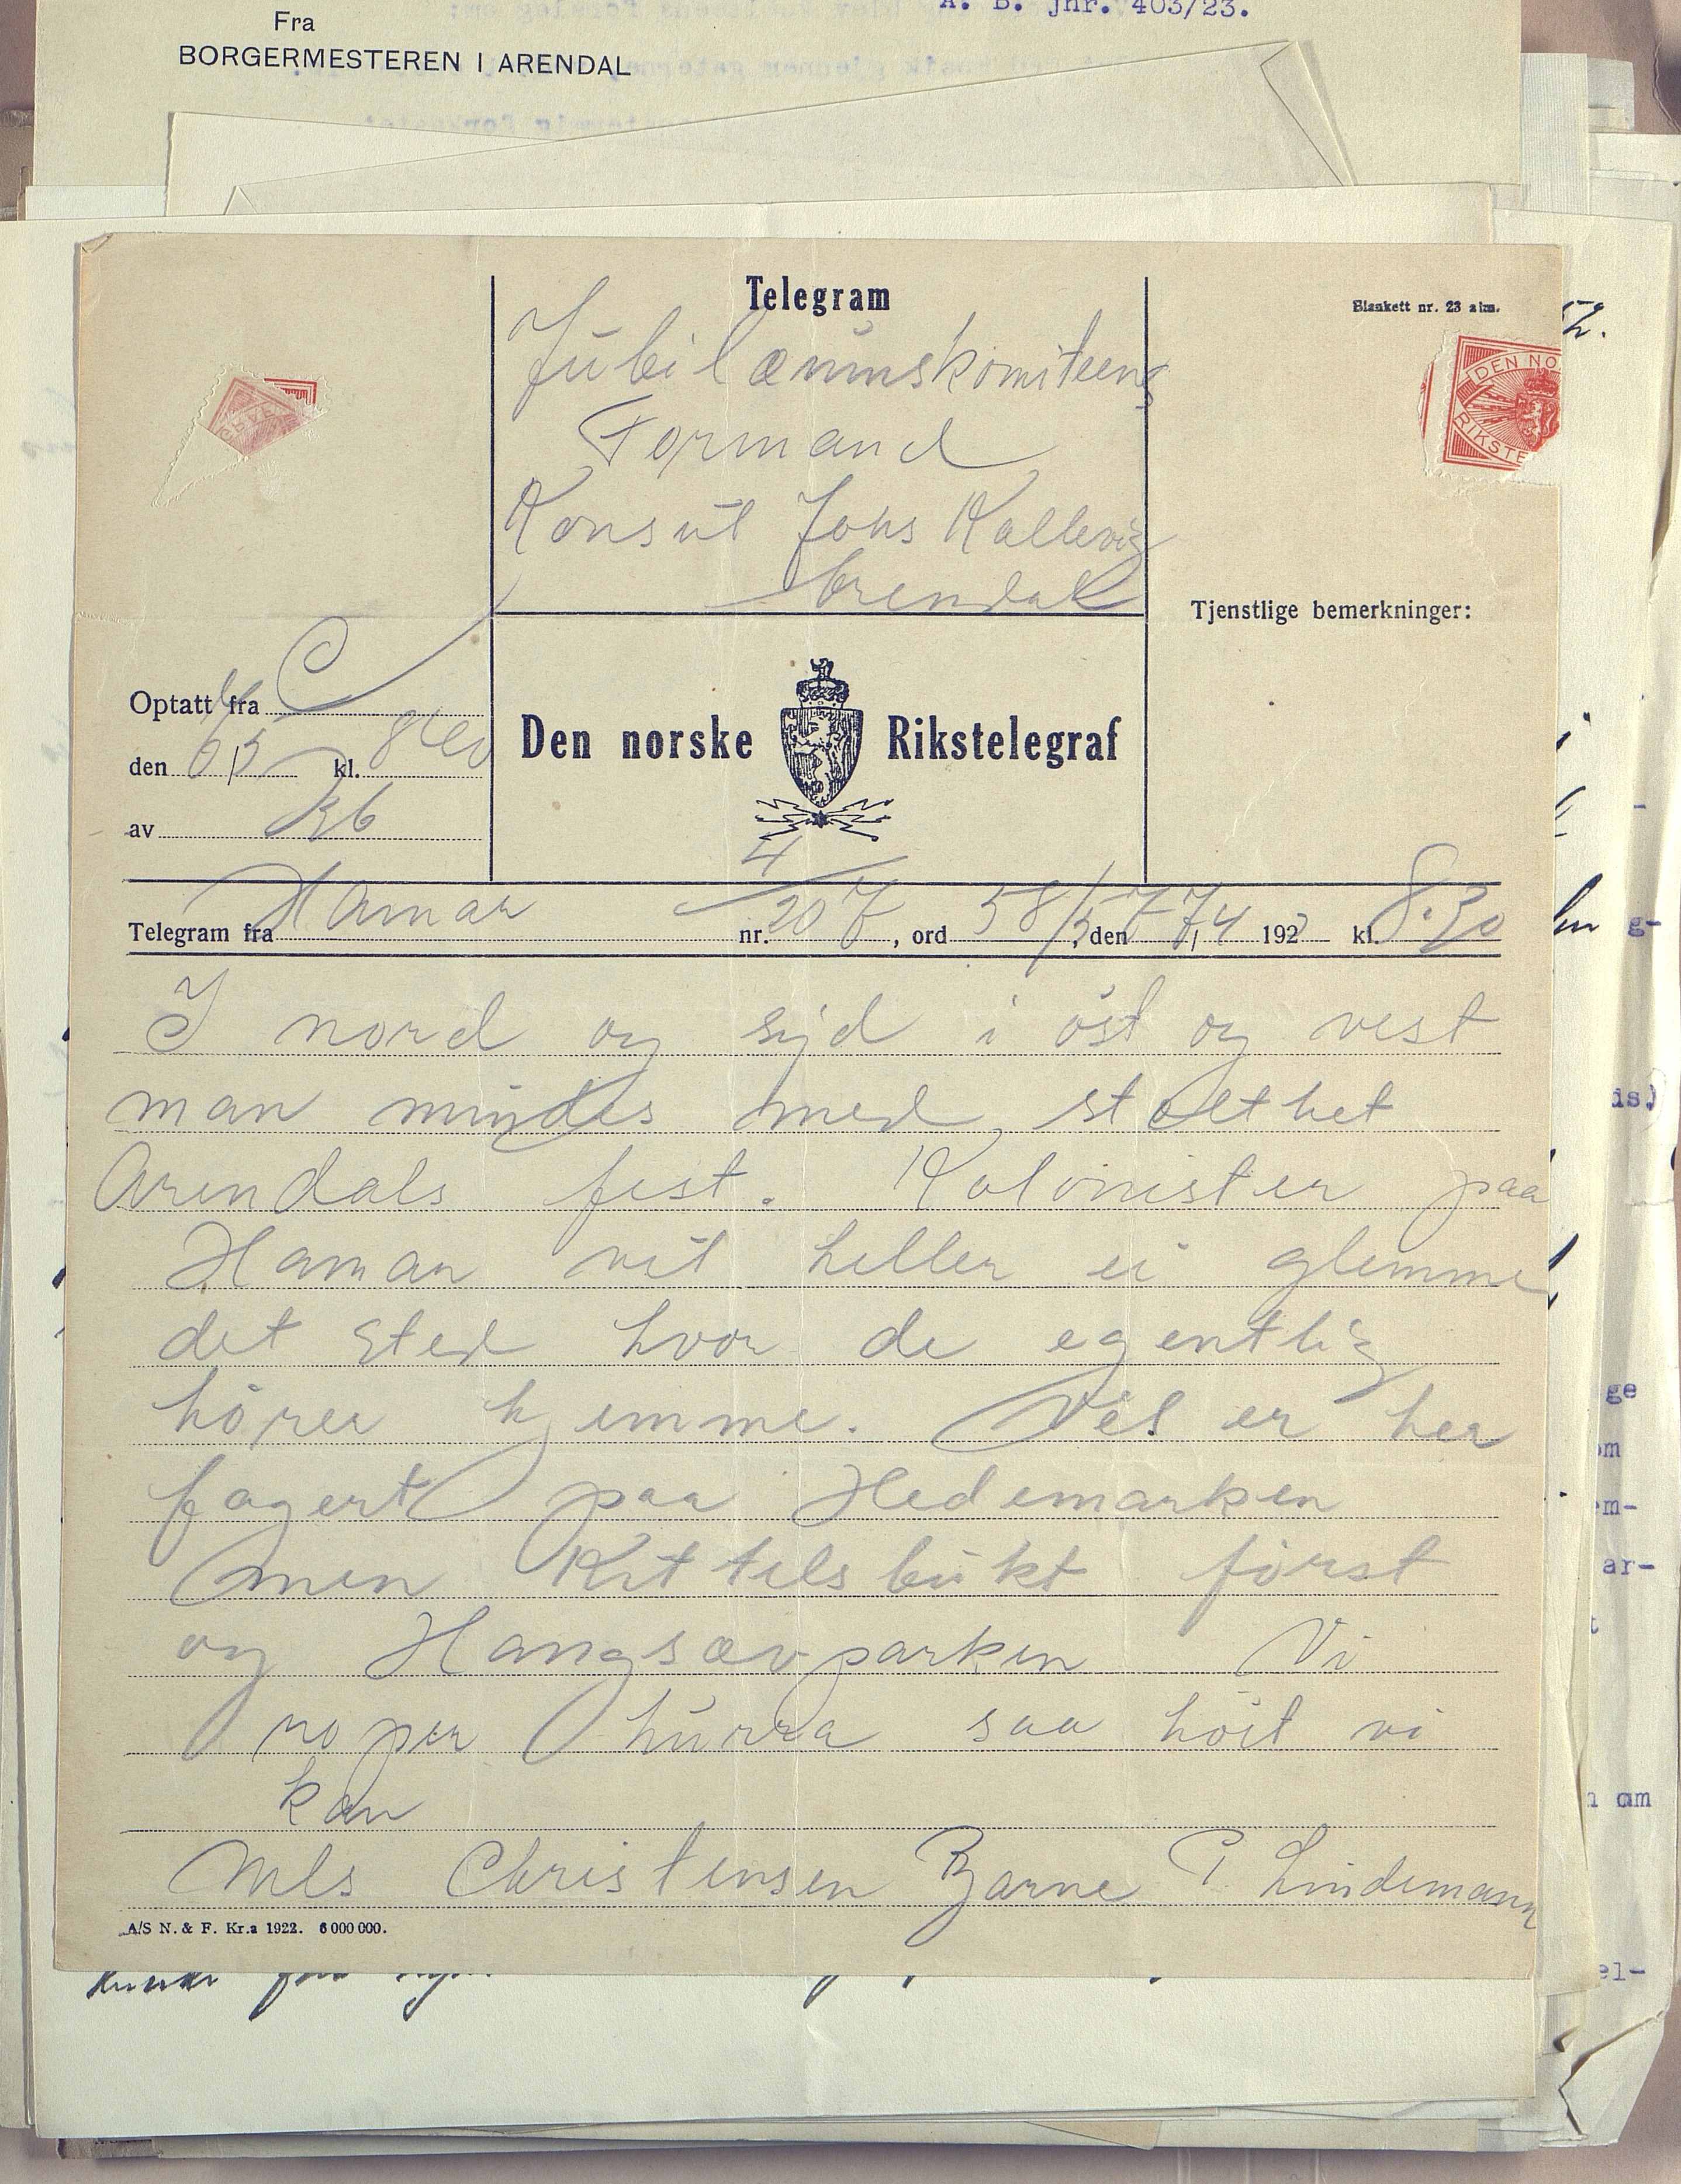 A. B. jnr. 403/23.
Fra
BORGERMESTEREN I ARENDAL
Telegram
Blankett nr. 23 alm.
Jubilæumskomiteens
Formand
Konsul Johs Kallevig
Arendal
DEN NO
RIKSTE
Tjenstlige bemerkninger:
Optatt fra C
den 6/5 kl. 8
av
Den norske Rikstelegraf
Telegram fra Hamar nr. 207, ord 58/57, den 7/4 1923 kl. 8.30
I nord og syd i öst og vest
man mindes med stolthet
Arendals fest. Kolonister paa
Hamar vil heller ei glemme
det sted hvor de egentlig
hörer hjemme. Vel er her
fagert paa Hedemarken
men Kittelsbukt först
og Hangsævparken Vi
roper hurra saa höit vi
kan
Nils Christensen Bjarne P Lindemann
A/S N. & F. Kr.a 1922. 6 000 000.